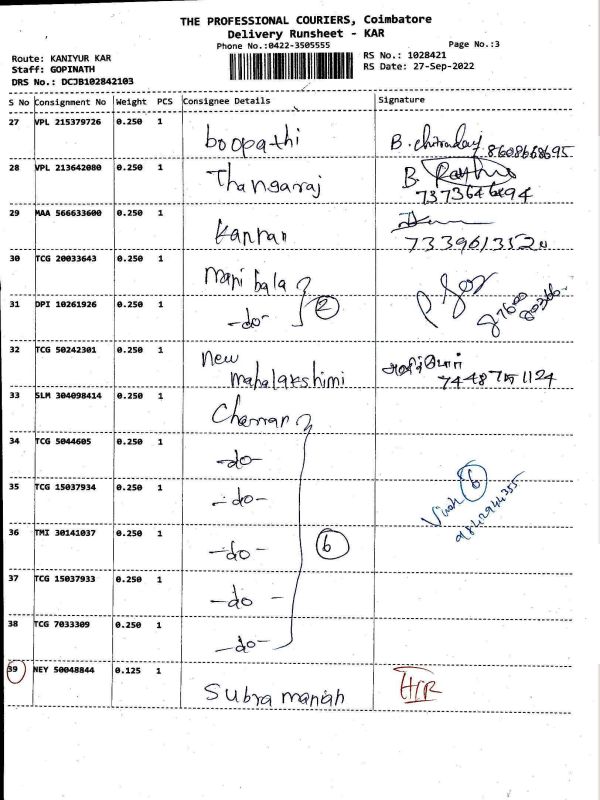 THE PROFESSIONAL COURIERS, Coimbatore
Delivery Runsheet - KAR
Phone No.:0422-3505555
Page No.:3
Route: KANIYUR KAR
Staff: GOPINATH
DRS No.: DCJB102842103
RS No.: 1028421
RS Date: 27-Sep-2022
S No Consignment No Weight PCS Consignee Details Signature
27 VPL 215379726 0.250 1 boopathi B.
8608668695
28 VPL 213642080 0.250 1 Thangaraj B.
7373646494
29 MAA 566633600 0.250 1 Kannan
30 TCG 20033643 0.250 1 mani bala
31 DPI 10261926 0.250 1 -do- 2
32 TCG 50242301 0.250 1 new
mahalakshimi
33 SLM 304098414 0.250 1
34 TCG 5044605 0.250 1 -do-
35 TCG 15037934 0.250 1 -do- 6
9842944355
36 TMI 30141037 0.250 1 -do- 6
37 TCG 15037933 0.250 1 -do-
38 TCG 7033309 0.250 1 -do-
39 NEY 50048844 0.125 1 Subramaniah